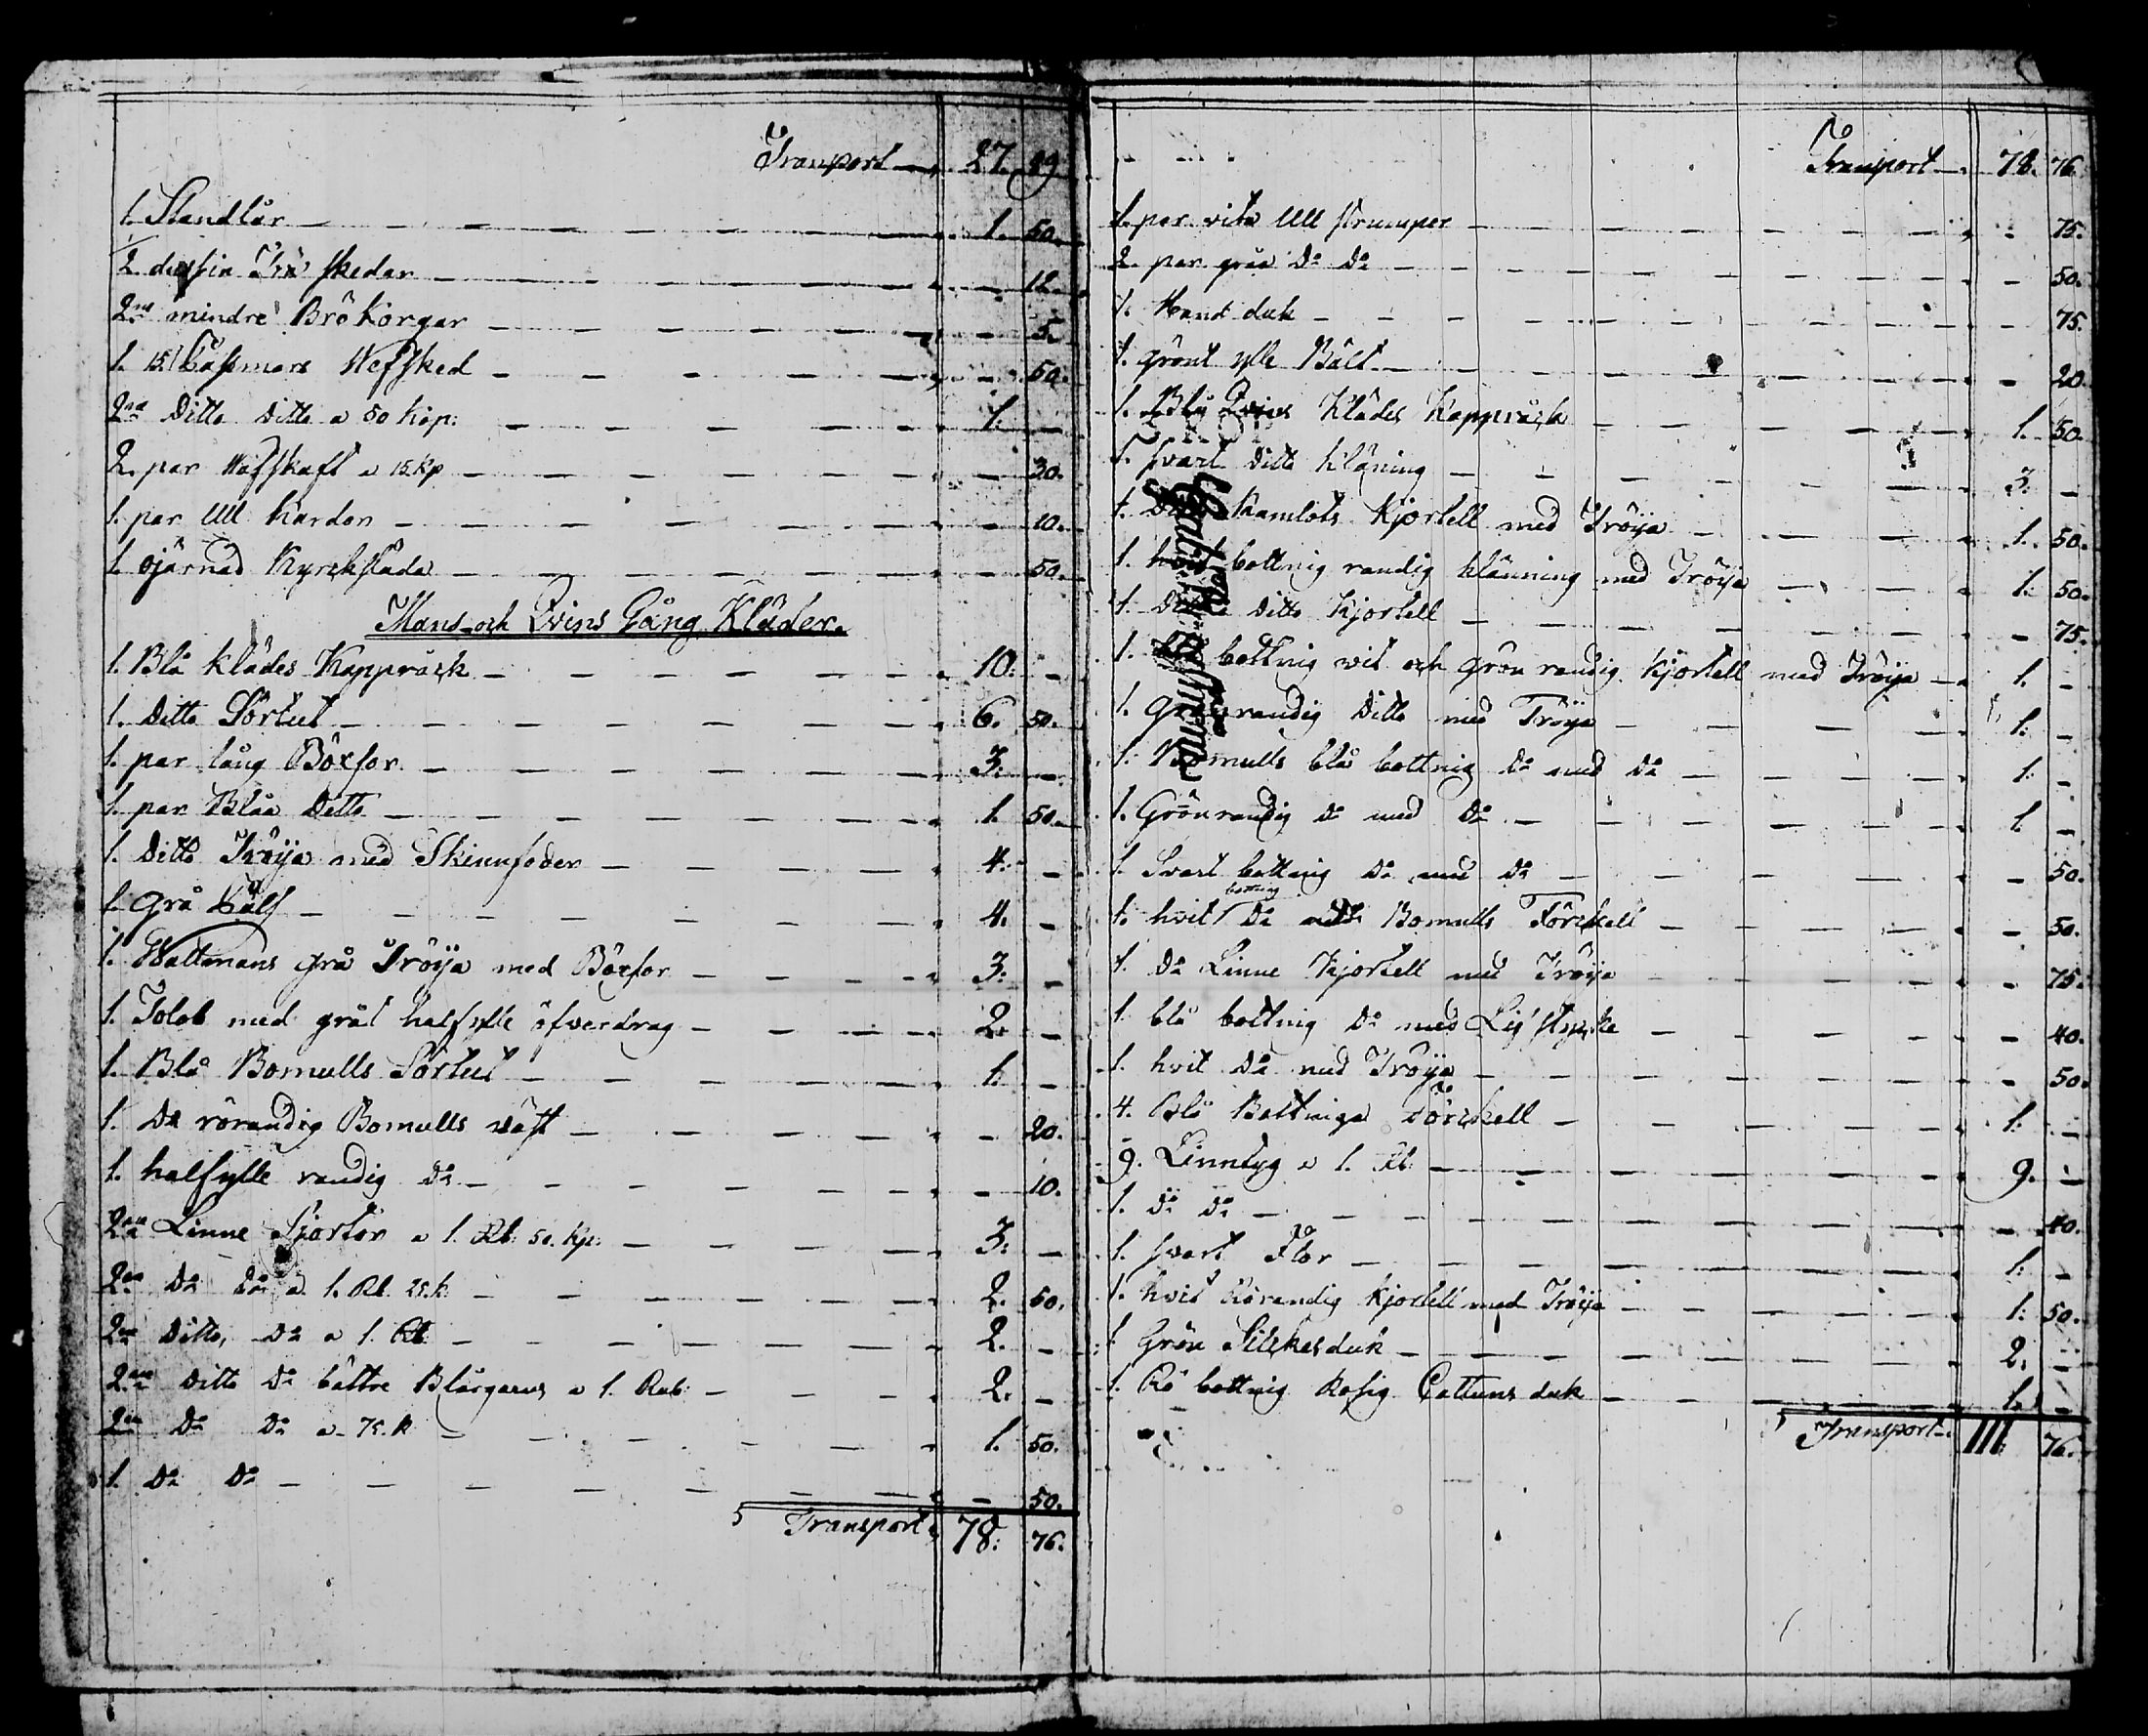 Transport 27. 89
1. Standkar 1. 50.
2. dussin Trä skedar 12.
2ne mindre Brökorgar 5.
1. 15. Wefsked 50.
2ne Ditto Ditto a 50 kop: 1. —
2. par Wäfskaft a 15 Kp 30.
1. par Ull kardor 10.
1. Kyrckslåda 50.
Mans- och Qvins Gång Kläder.
1. Blå klädes Kappråck 10. —
1. Ditto Sörtut 6. 50.
1. par lång Böxsor 3. —
1. par Blåa Ditto 1. 50.
1. Ditto Tröija med Skinnfoder 4. —
1. Grå 4. —
1. Waltmans grå Tröija med Böxsor 3. —
1. Tolob med gråt halfylle öfwerdrag 2. —
1. Blå Bomulls Sörtut 1. —
1. Do rörandig Bomulls wäst 20.
1. halfylle randig Do 10.
2ne Linne Sjortor a 1. Rb: 50. kp: 3. —
2ne Do Do a 1. Rb. 25. k 2. 50.
2ne Ditto, Do a 1. Rb 2. —
2ne Ditto Do bättre Blårgarns a 1. Rub: 2. —
2ne Do Do a 75. k 1. 50.
1. Do Do 50.
Transport 78. 76.
Transport 78. 76.
1. par vita Ull strumper 75.
2. par gråa Do Do 50.
1. Hand duk 75.
1. grönt ylle Bält 20.
1. Blå Qvins Klädes Kappråck 1. 50.
1. svart Ditto kläning 3. —
1. Kamlots Kjortell med Tröija 1. 50.
1. bottnig randig klänning med Tröija 1. 50.
1. Ditto Kjortell 75.
1. bottnig wit och grön randig Kjortell med Tröija 1. —
1. Grönrandig Ditto med Tröija 1. —
1. Bomulls blå bottnig Do med Do 1. —
1. Grönrandig Do med Do 1. —
1. Svart bottnig Do med Do 50.
bottnig
1. hvit Do Bomulls Förckell 50.
1. Do Linne Kjortell med Tröija 75.
1. blå bottnig Do med Lif stycke 40.
1. hvit Do med Tröija 50.
4. Blå Bottniga Förckell 1. —
9. Linntyg a 1. Rb 9. —
1. Do Do 40.
1. svart Flor 1. —
1. hvit Rörandig Kjortell med Tröija 1. 50.
1. Grön Silckesduk 2. —
1. Rö bottnig Rosig Cattuns duk 1. —
Transport 111. 76.